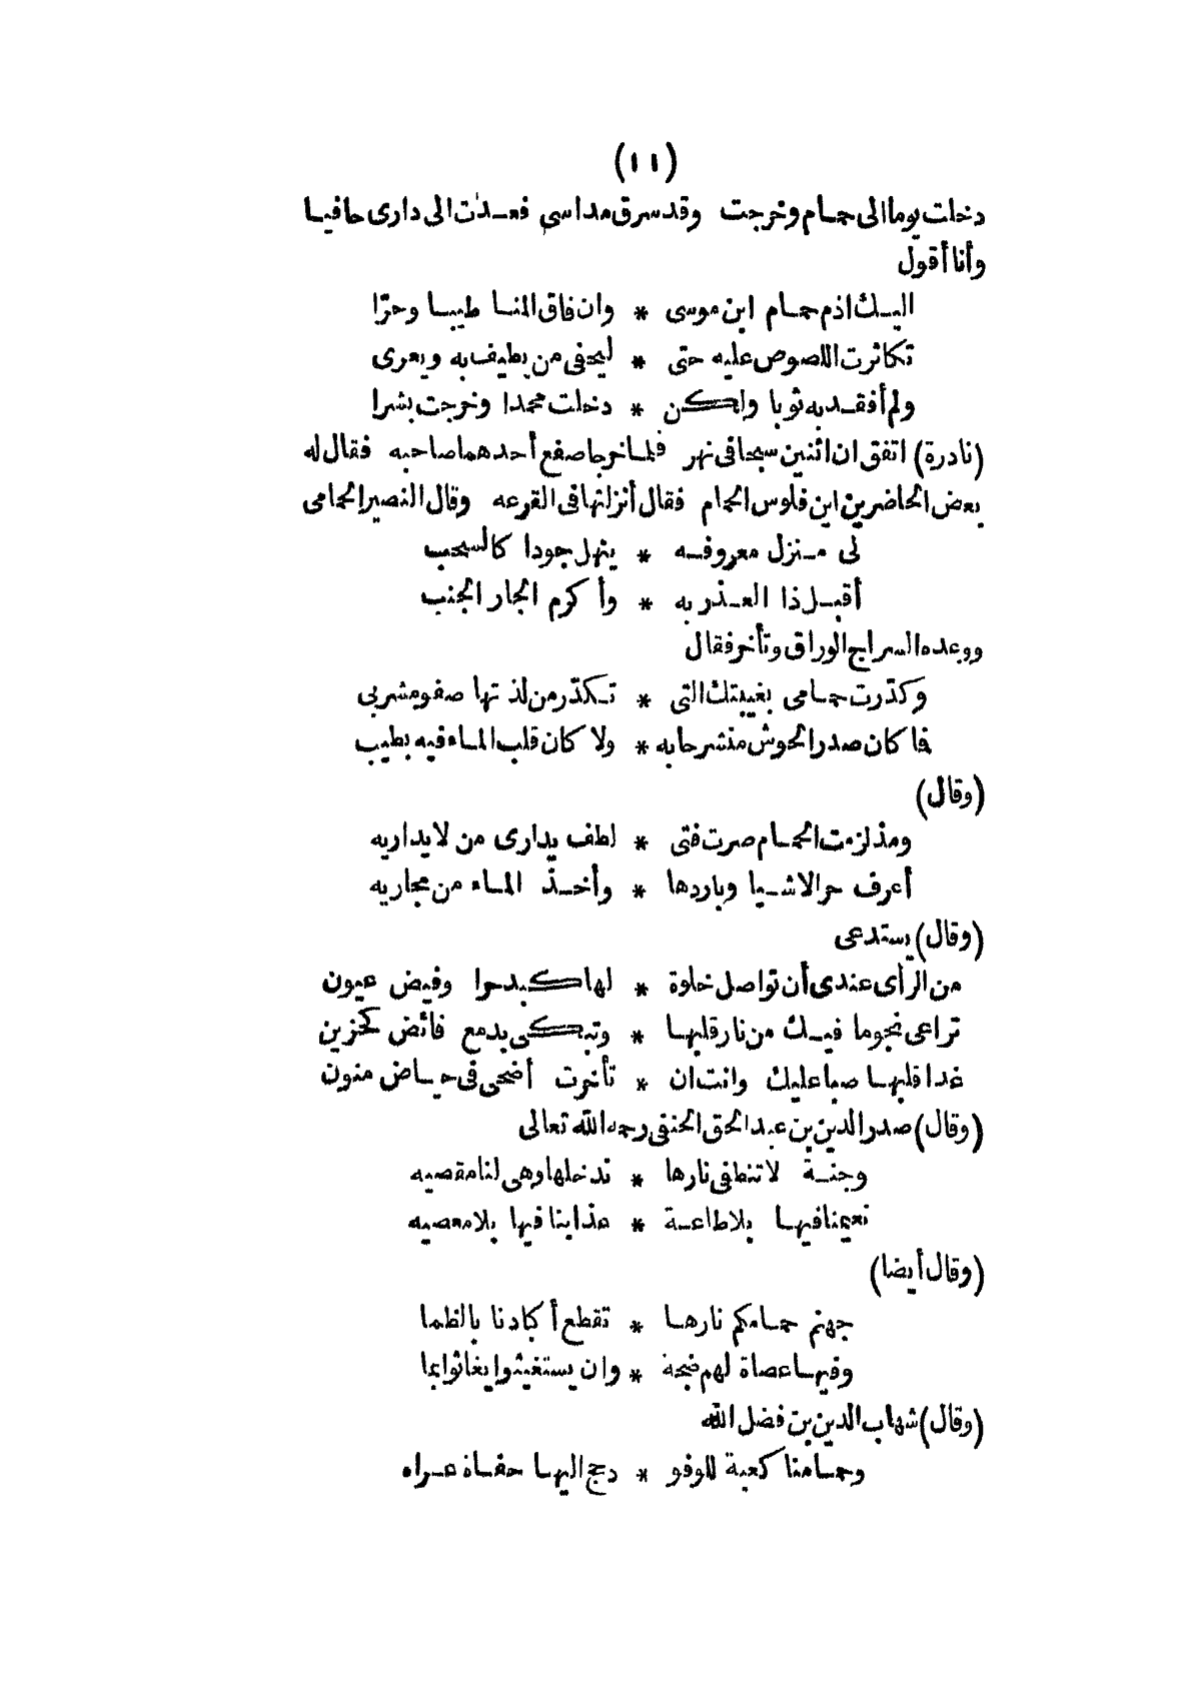 (١١)
دخلت يوما الى حمام وخرجت وقد سرق مداسى فعدت الى دارى حافيا
وأنا أقول
اليك اذم حمام ابن موسى * وان فاق المنا طيبا وحرّا
تكاثرت اللصوص عليه حتى * ليحفى من يطيف به ويعرى
ولم أفقد به ثوبا ولكن * دخلت محمدا وخرجت بشرا
(نادرة) اتفق ان اثنين سبحا فى نهر فلما خرجا صفع أحدهما صاحبه فقال له
بعض الحاضرين اين فلوس الحمام فقال أنزلتها فى القرعه وقال النصير الحمامى
لى منزل معروفه * ينهل جودا كالسحب
أقبل ذا العذر به * وأكرم الجار الجنب
ووعده السراج الوراق وتأخر فقال
وكدّرت حمامى بغيبتك التى * تكدّر من لذتها صفو مشربى
فما كان صدر الحوش منشرحا به * ولا كان قلب الماء فيه بطيب
(وقال)
ومذ لزمت الحمام صرت فتى * لطف يدارى من لا يداريه
أعرف حر الاشيا وباردها * وأخذ الماء من مجاريه
(وقال) يستدعى
من الرأى عندى أن تواصل خلوة * لها كبد حرا وفيض عيون
تراعى نجوما فيك من نار قلبها * وتبكى بدمع فائض كحزين
غدا قلبها صبا عليك وانت ان * تأخرت أضحى فى حياض منون
(وقال) صدر الدين بن عبد الحق الحنفى رحمه الله تعالى
وجنة لا تنطفى نارها * ندخلها وهى لنا مقصيه
نعيمنا فيها بلا طاعة * عذابنا فيها بلا معصيه
(وقال أيضا)
جهنم حمامكم نارها * تقطع أكبادنا بالظما
وفيها عصاة لهم ضجة * وان يستغيثوا يغاثوا بما
(وقال) شهاب الدين بن فضل الله
وحمامنا كعبة للوفو * د حج اليها حفاة عراه